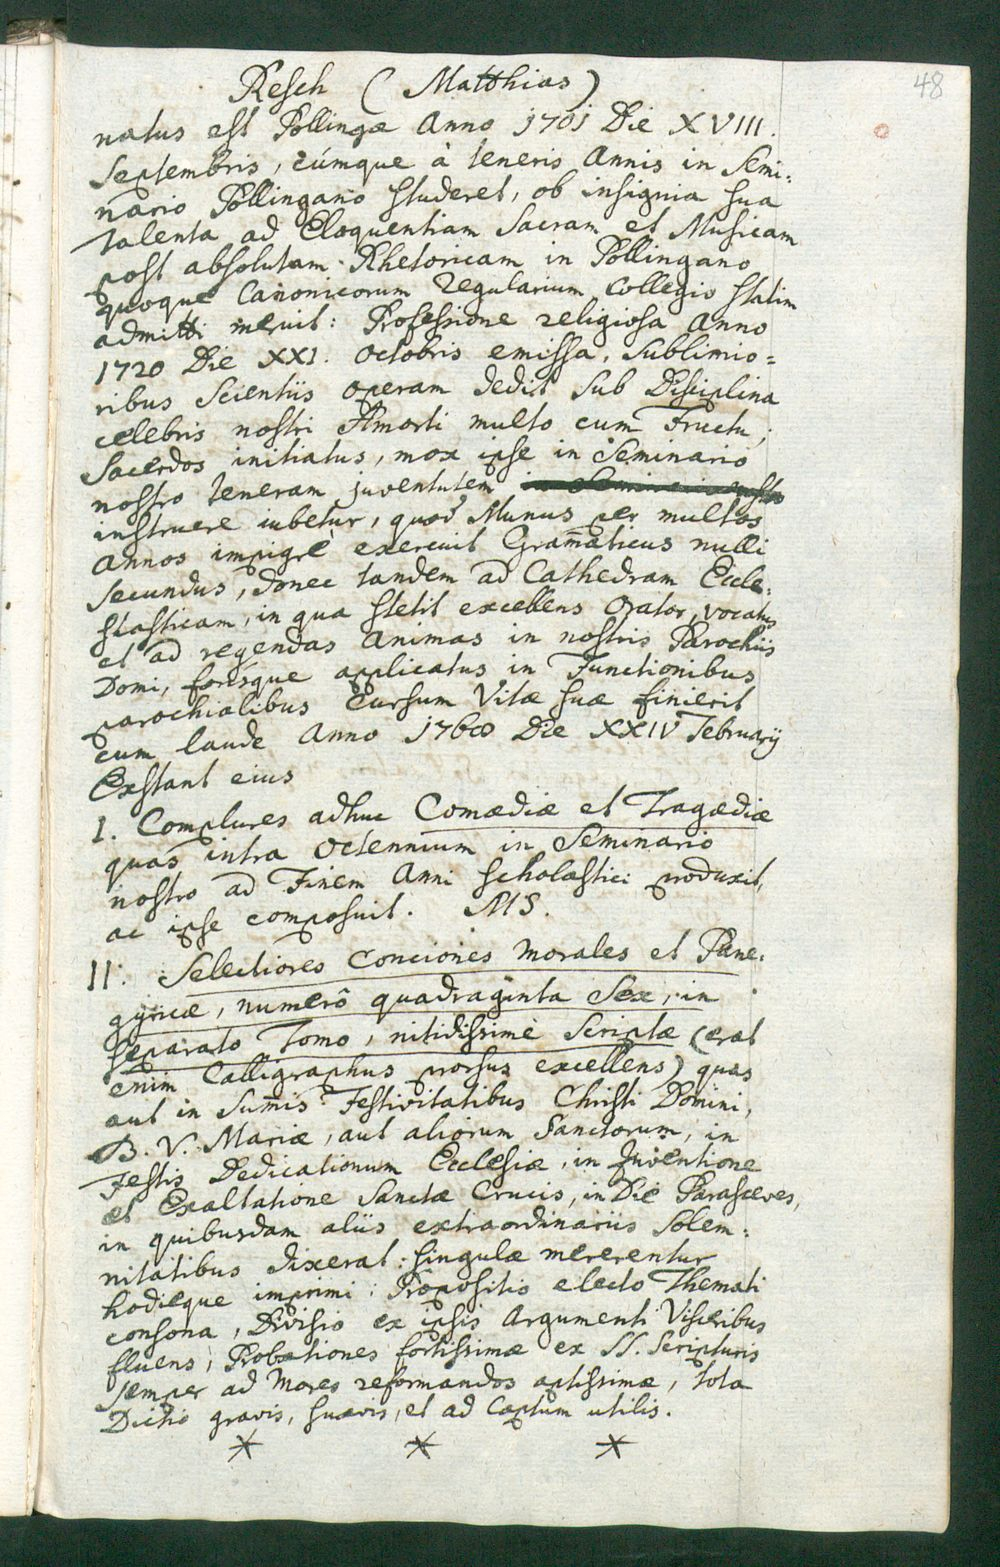 48
Resch (Matthias)
natus est Pollingæ Anno 1701 Die XVIII.
Septembris, cúmque à teneris Annis in Semi:
nario Pollingano studeret, ob insignia sua
Talenta ad Eloquentiam Sacram et Musicam
post absolutam Rhetoricam in Pollingano
quoque Canonicorum Regularium Collegio statim
admitti meruit: Professione religiosa Anno
1720 Die XXI. Octobris emissa, sublimio=
ribus Scientiis operam dedit sub Disciplina
celebris nostri Amorti multo cum Fructu;
Sacerdos initiatus, mox ipse in Seminario
nostro teneram juventutem
instruere iubetur, quod Munus per multos
Annos impigrè exercuit Gram̄aticus nulli
secundus, donec tandem ad Cathedram Eccle:
siasticam, in qua stetit excellens Orator, vocatus
et ad regendas Animas in nostris Parochiis
Domi, forisque applicatus in Functionibus
parochialibus Cursum Vitæ suæ finierit
cum laude Anno 1760 Die XXIV Februarij
Exstant eius
I. Complures adhuc Comœdiæ et Tragœdiæ
quas intra Octennium in Seminario
nostro ad Finem Anni scholastici produxit,
ac ipse composuit. MS.
II: Selectiores Conciones morales et Pane:
gyricæ, numerô quadraginta Sex, in
separato Tomo, nitidissimè scriptæ (erat
enim Calligraphus prorsus excellens) quas
aut in Sum̄is Festivitatibus Christi Domini,
B. V. Mariæ, aut aliorum Sanctorum, in
Festis Dedicationum Ecclesiæ, in Inventione
et Exaltatione Sanctæ Crucis, in Die Parasceves,
in quibusdam aliis extraordinariis Solem:
nitatibus dixerat: singulæ mererentur
hodieque imprimi: Propositio electo Themati
consona, Divisio ex ipsis Argumenti Visceribus
fluens, Probationes fortissimæ ex SS. Scripturis
semper ad Mores reformandos aptissimæ, tota
Dictio gravis, suavis, et ad Captum utilis.
* * *